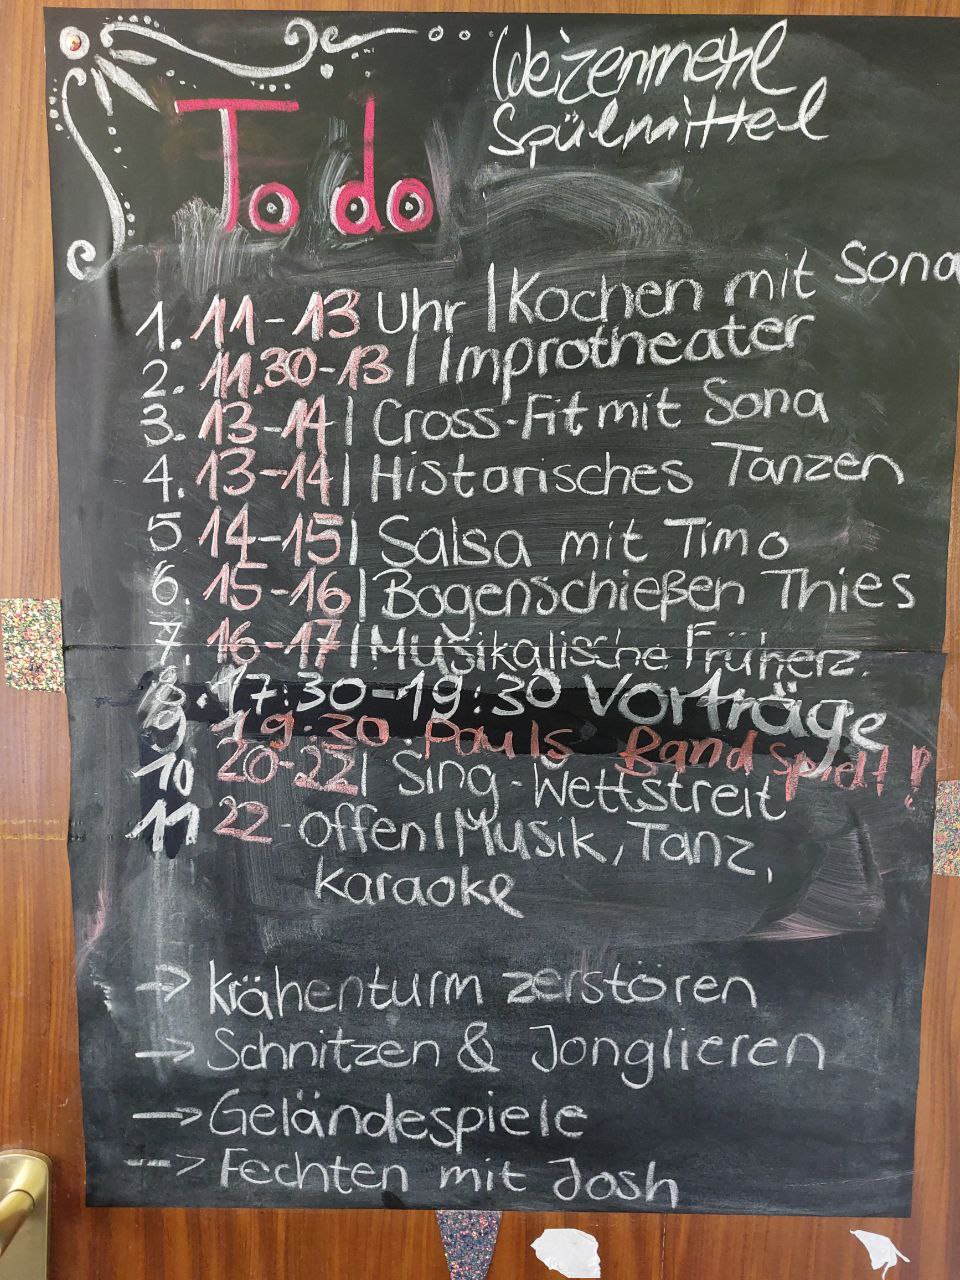 Weizenmehl
Spülmittel
To do
1. 11-13 Uhr | Kochen mit Sona
2. 11.30-13 | Improtheater
3. 13-14 | Cross-Fit mit Sona
4. 13-14 | Historisches Tanzen
5 14-15 | Salsa mit Timo
6. 15-16 | Bogenschießen Thies
7. 16-17 | Musikalische Früherz.
8. 17:30-19:30 Vorträge
9 19:30 Pauls Band spielt!
10 20-22 | Sing-Wettstreit
11 22-offen | Musik, Tanz,
Karaoke
-> Krähenturm zerstören
-> Schnitzen & Jonglieren
-> Geländespiele
-> Fechten mit Josh